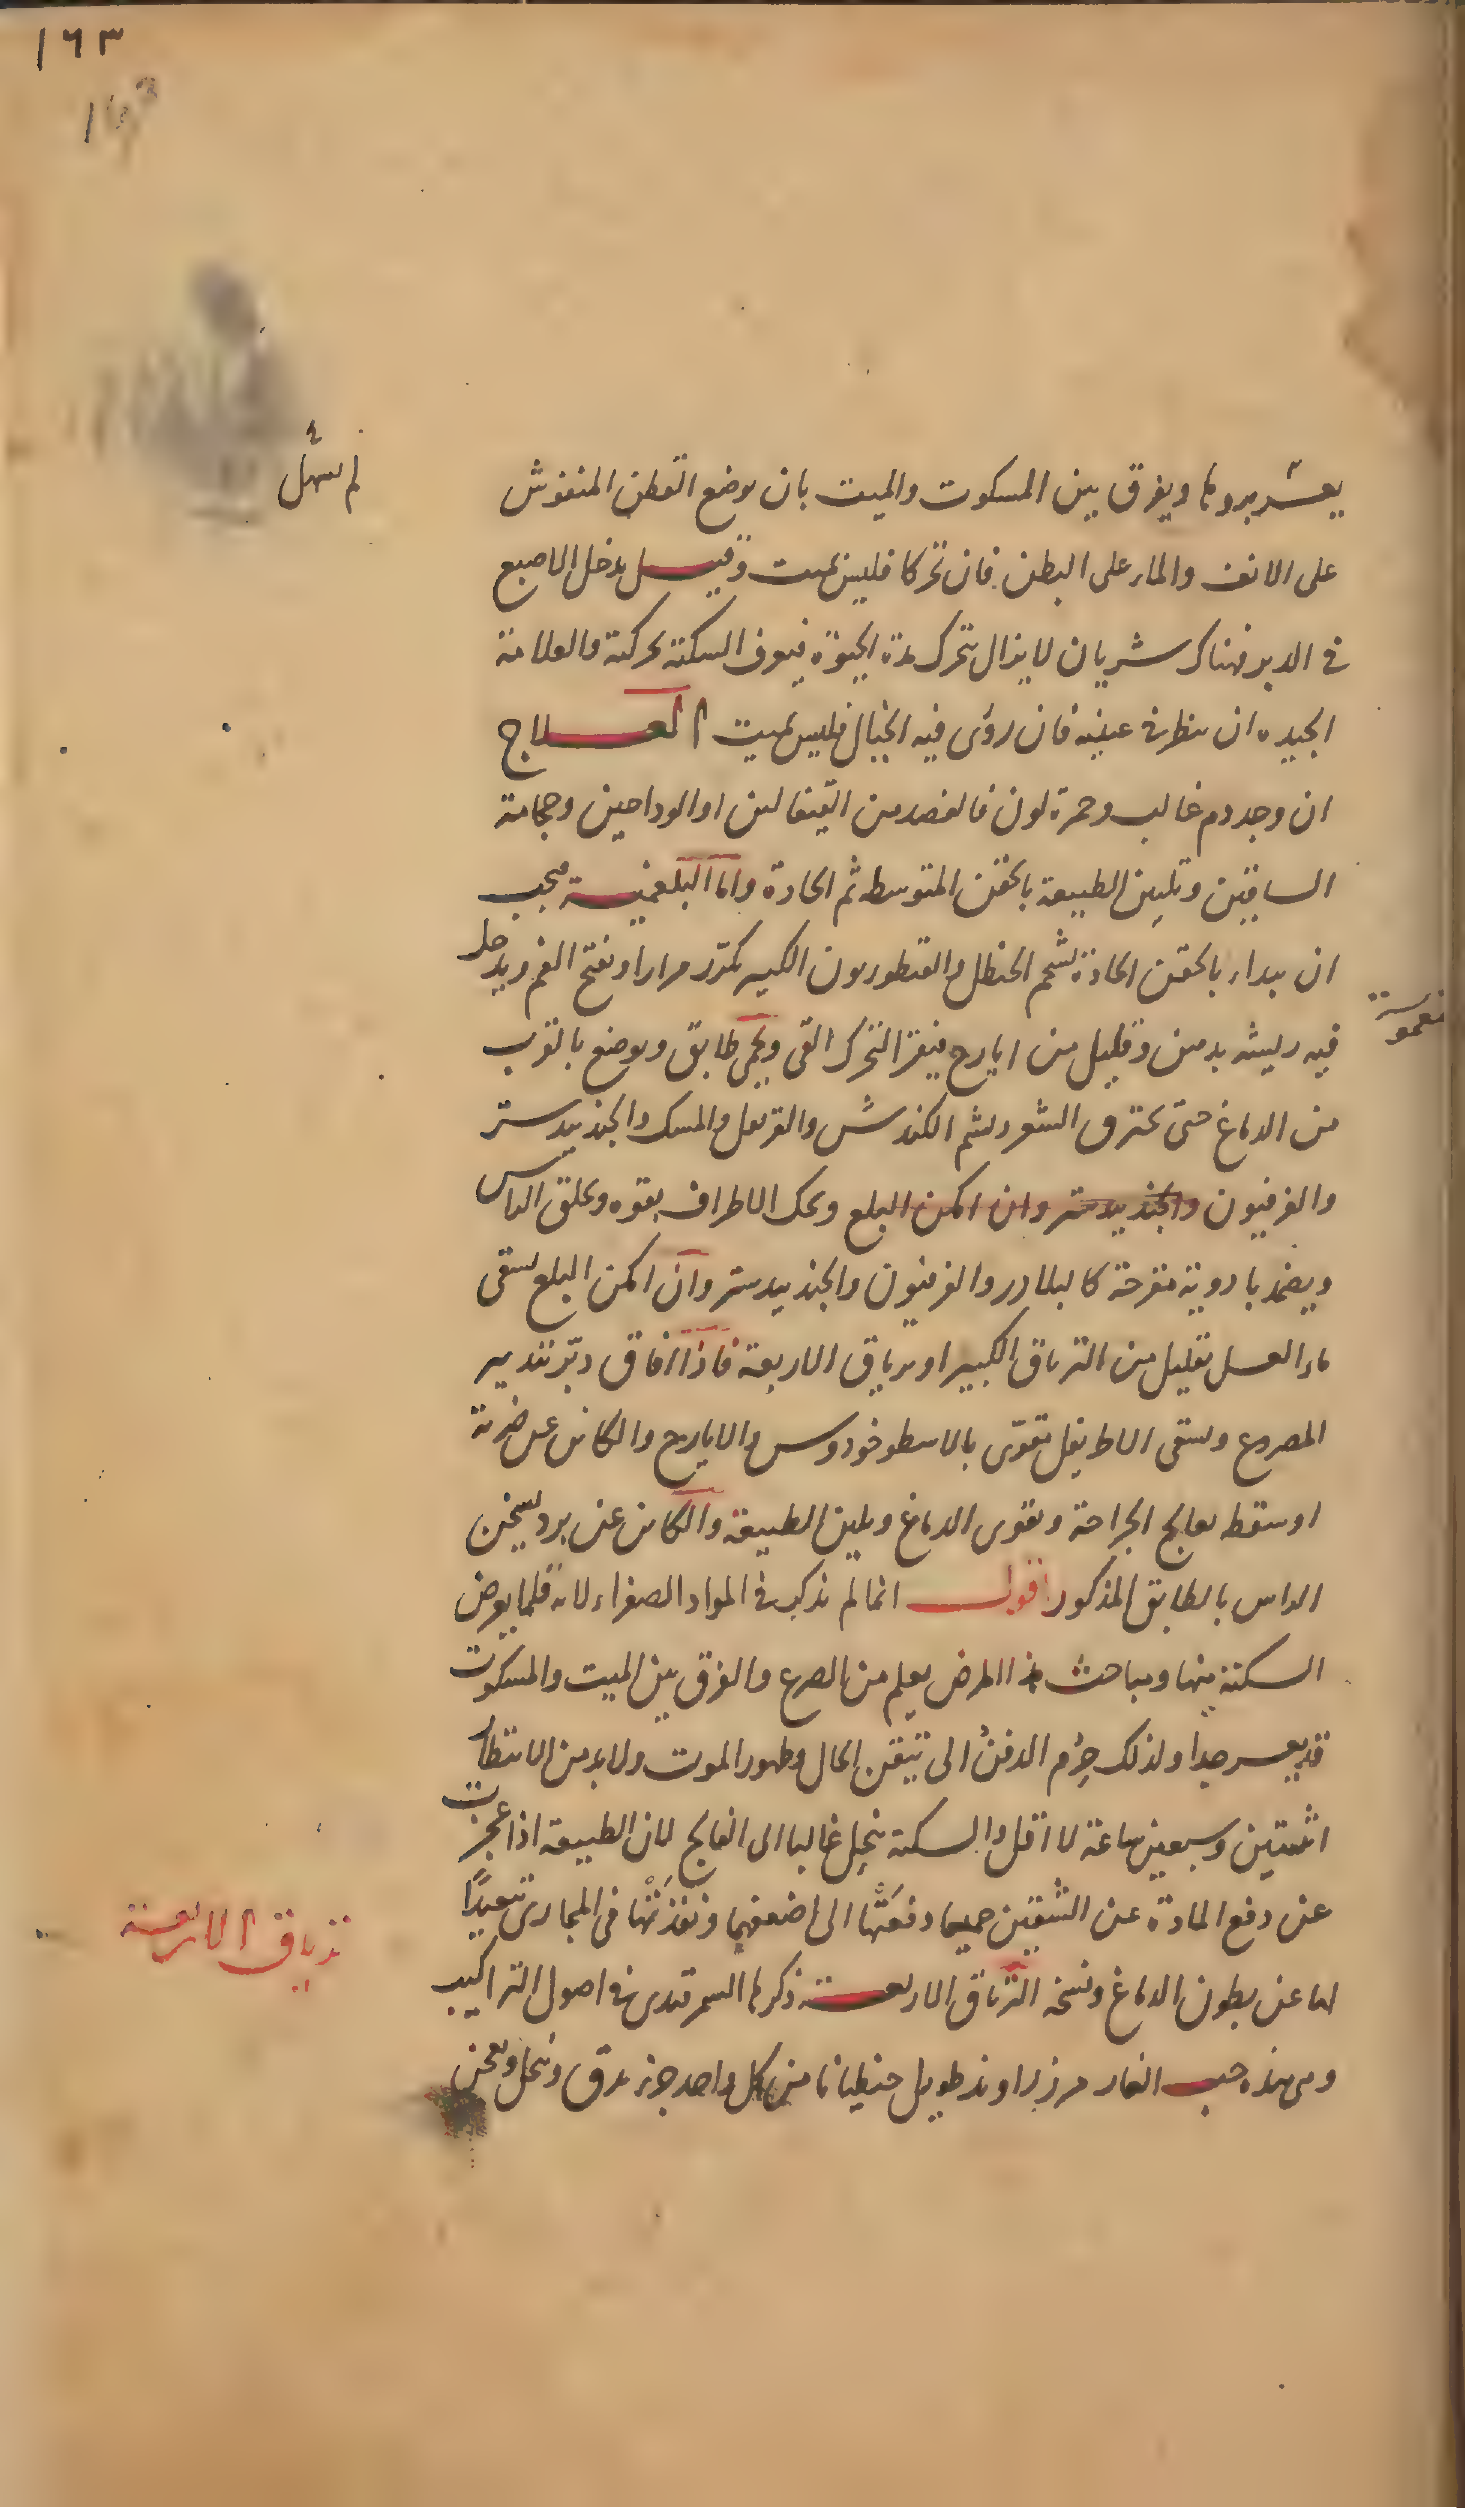 ١٦٣
163
لم يسهل
يعسر برؤها ويفرق بين المسكوت والميت بان يوضع القطن المنفوش
على الانف والماء على البطن فان تحركا فليس بميت وقيل يدخل الاصبع
فى الدبر فهناك شريان لا يزال يتحرك مدة الحيوة فيعرف السكتة بحركته والعلامة
الجيده ان ينظر فى عينيه فان رؤى فيه الخيال فليس بميت العلاج
ان وجد دم غالب وحمرة لون فالفصد من القيفالين او الوداجين وحجامة
الساقين وتليين الطبيعة بالحقن المتوسطه ثم الحادة واما البلغمية فيجب
ان يبداء بالحقن الحادة بشحم الحنظل والقنطوريون الكبير يكرّر مرارا ويفتح الفم ويدخل
مغموسة
فيه ريشه بدهن وقليل من ايارج فيقرا لتحرك القى ويحمى طابق ويوضع بالقرب
من الدماغ حتى يحترق الشعر ويشم الكندش والقرنفل والمسك والجندبيدستر
والفرفيون والجندبيدستر وان امكن البلع ويحك الاطراف بقوه ويحلق الراس
ويضمد بادوية مقرحة كالبلادر والفرفيون والجندبيدستر وان امكن البلع يسقى
ماء العسل بقليل من الترياق الكبير او ترياق الاربعة فاذا افاق دبّر بتدبير
المصروع ويسقى الاطريفل مقوّى بالاسطوخودوس والايارج والكائن عن ضربة
او سقطه يعالج الجراحة ويقوى الدماغ ويلين الطبيعة والكائن عن برد يسخن
الراس بالطابق المذكور اقول انما لم يذكر فى المواد الصفراء لانه قلما يعرض
السكتة منها ومباحث هذا المرض يعلم من الصرع والفرق بين الميت والمسكوت
قد يعسر جدا ولذلك حرّم الدفن الى تيقن الحال وظهور الموت ولا بد من الانتظار
اثنتين وسبعين ساعة لا اقل والسكتة ينحل غالبا الى الفالج لان الطبيعة اذا عجزت
عن دفع المادة عن الشقين جميعا دفعتها الى اضعفهما ونفذتها فى المجارى تبعيدًا
لها عن بطون الدماغ ونسخة الترياق الاربعة ذكرها السمرقندى فى اصول التراكيب
ترياق الاربعة
وهى هذه حب الغار مر زراوند طويل جنطيانا من كل واحد جزء يدق وينخل ويعجن